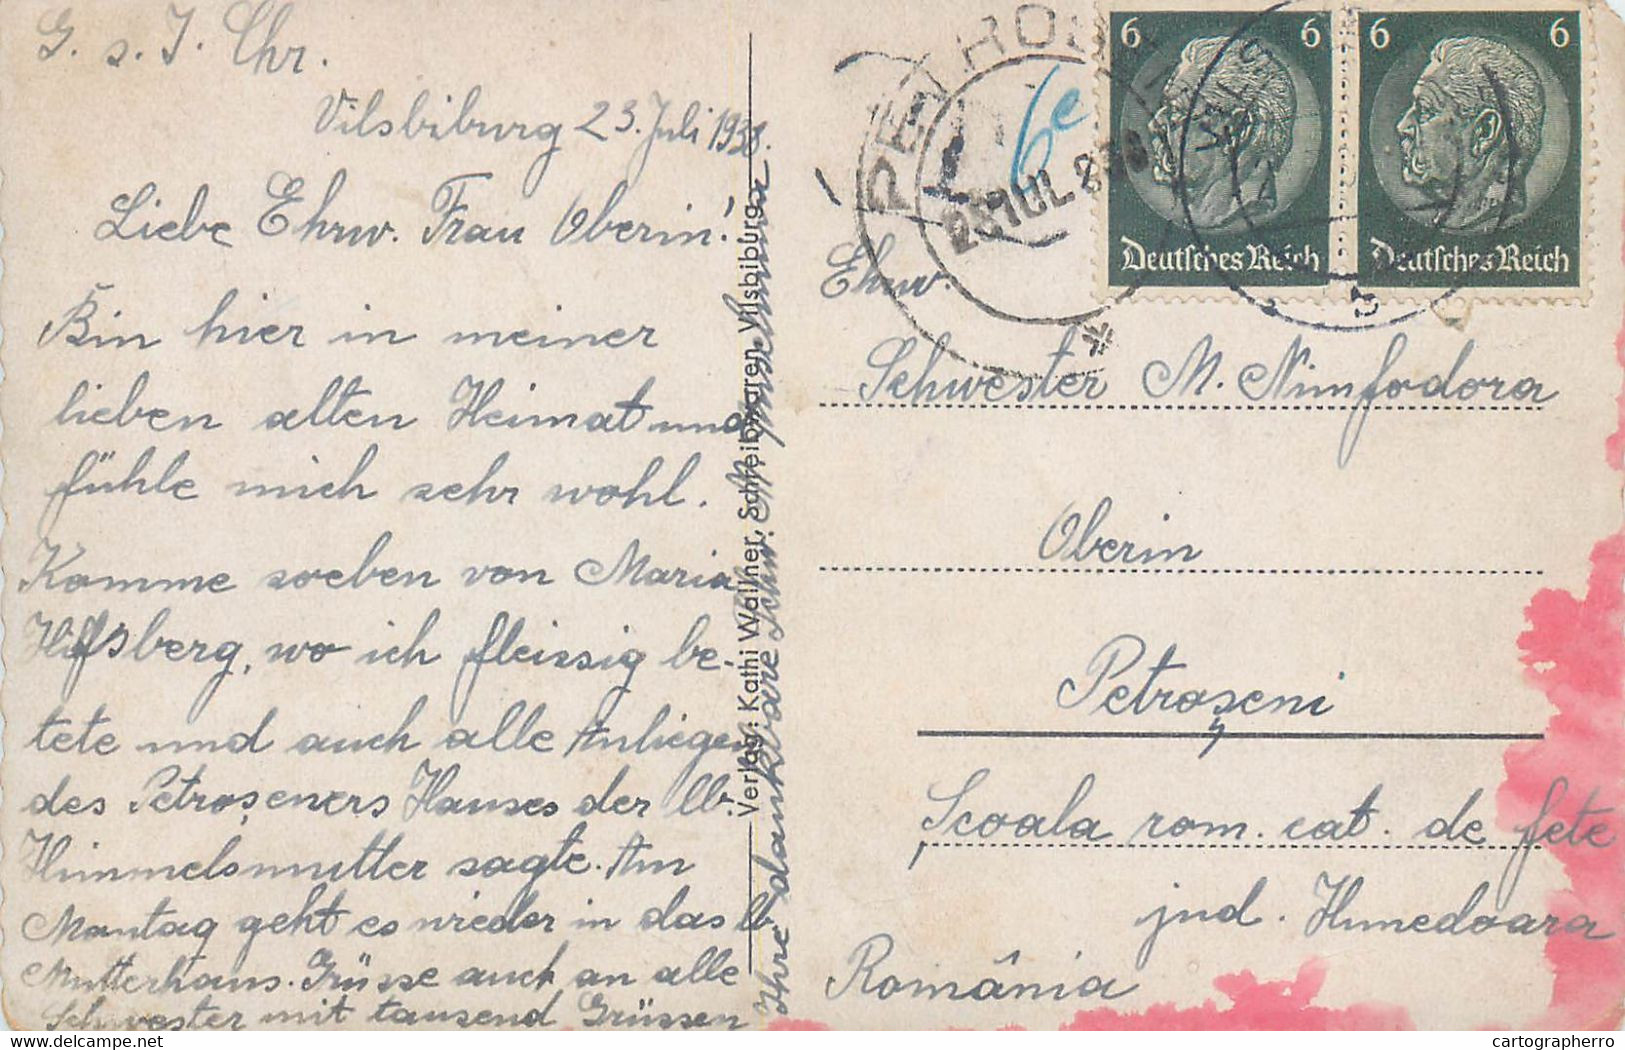 G. s. J. Chr.
Vilsbiburg 23. Juli 1938.
Liebe Ehrw. Frau Oberin!
Bin hier in meiner
lieben alten Heimat und
fühle mich sehr wohl.
Komme soeben von Maria
Hilfsberg, wo ich fleissig be-
tete und auch alle Anliegen
des Petroșeners Hauses der lb.
Himmelsmutter sagte. Am
Montag geht es wieder in das lb.
Mutterhaus. Grüsse auch an alle
Schwester mit tausend Grüssen
Ihre dankbare Schw. M.
Verlag: Kathi Wallner, Schreibwaren, Vilsbiburg.
6e
PETROȘ
6 6
Deutsches Reich
6 6
Deutsches Reich
Ehrw.
Schwester M. Nimfodora
Oberin
Petroșeni
Școala rom. cat. de fete
jud. Hunedoara
România
cartographerro
www.delcampe.net